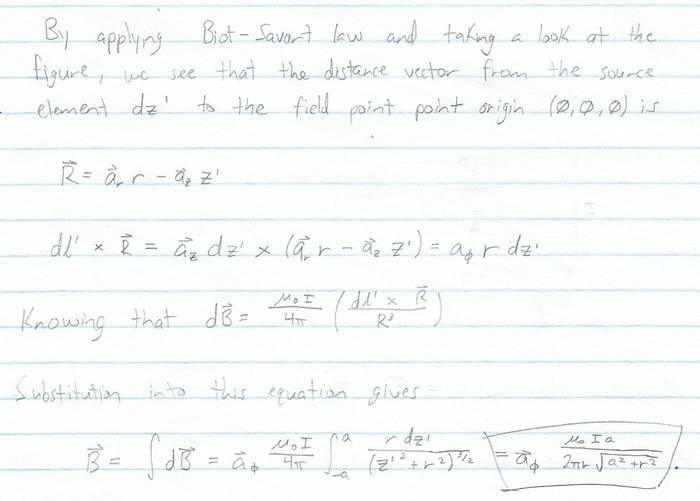 By applying Biot-Savart law and taking a look at the
figure, we see that the distance vector from the source
element dz' to the field point point origin (∅,∅,∅) is
R⃗ = a⃗ᵣ r − a⃗_z z'
dl' × R⃗ = a⃗_z dz' × (a⃗ᵣ r − a⃗_z z') = a_φ r dz'
Knowing that dB⃗ = μ₀I/4π (dl' × R⃗ / R³)
Substitution into this equation gives
B⃗ = ∫dB⃗ = a⃗_φ μ₀I/4π ∫₋ₐᵃ r dz'/(z'² + r²)^(3/2) = a⃗_φ μ₀Ia/(2πr√(a²+r²)).